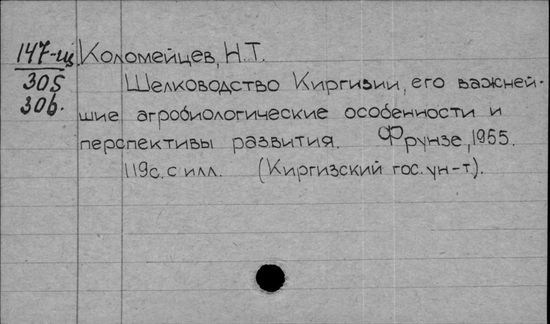 147-щ Коломейцев, Н.Т.
305 Шелководство Киргизии, его важней-
306. шие агробиологические особенности и
перспективы развития. Фрунзе, 1955.
119с. с илл. (Киргизский гос. ун-т).